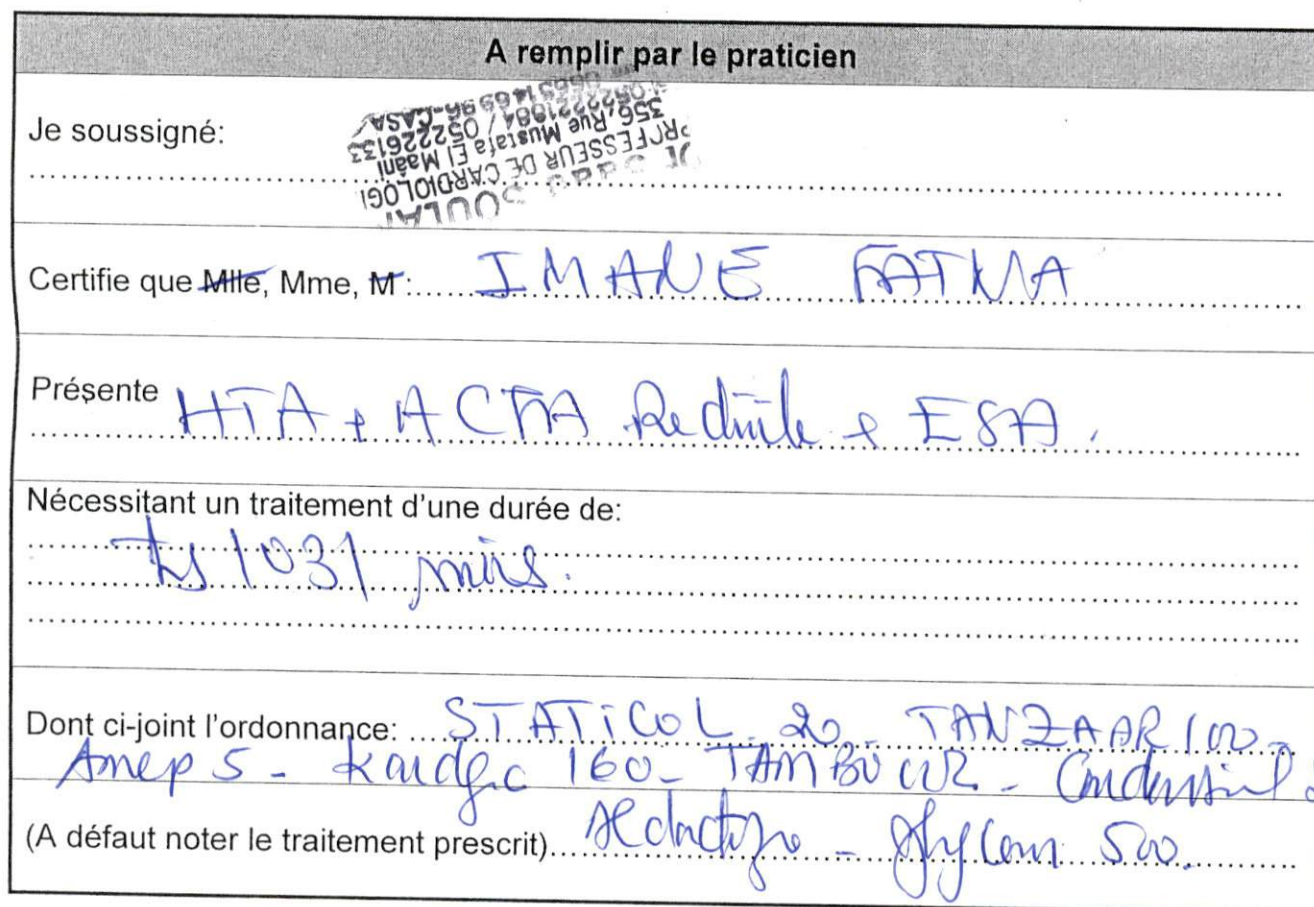 A remplir par le praticien
Je soussigné:
PROFESSEUR DE CARDIOLOGI
356, Rue Mustafa El Maâni
CASA
Certifie que Mlle, Mme, M: IMANE FATMA
Présente HTA + ACFA Reduite + ESA.
Nécessitant un traitement d'une durée de:
mois.
Dont ci-joint l'ordonnance: STATICOL 20 - TANZAAR 100 -
Amep 5 - Kardegic 160 -
(A défaut noter le traitement prescrit) 500.